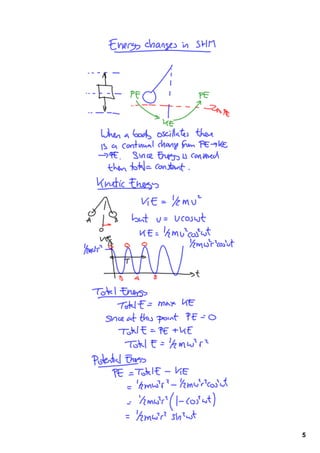 Energy changes in SHM
PE
PE
Zero PE
KE
When a body oscillates there
is a continual change from PE→KE
→PE. Since Energy is conserved
then total = constant.
Kinetic Energy
KE = ½mv²
but v = vcosωt
A
B
O
KE = ½mv²cos²ωt
KE
½mω²r²cos²ωt
½mω²r²
B O O
T
→t
O A B
Total Energy
Total E = max KE
Since at this point PE = 0
Total E = PE + KE
Total E = ½mω²r²
Potential Energy
PE = Total E − KE
= ½mω²r² − ½mω²r²cos²ωt
= ½mω²r² (1−cos²ωt)
= ½mω²r² sin²ωt
5